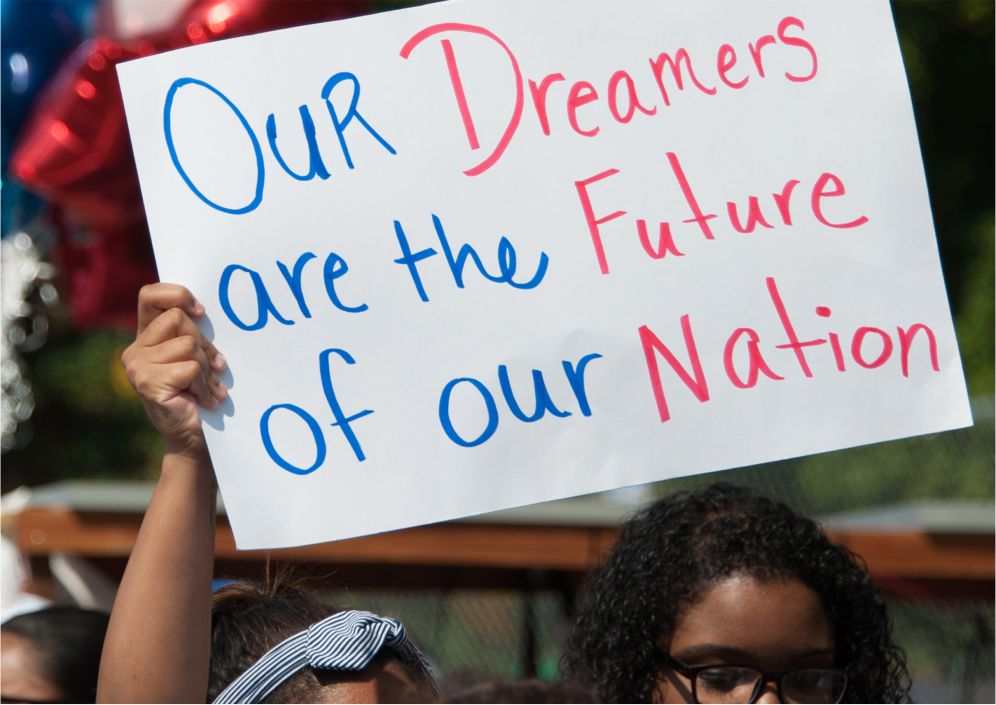 OuR Dreamers
are the Future
of our Nation